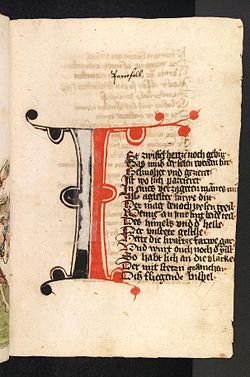 Parcifall
ISt zwifel hertze noch gebur
Das muß der selen werden sur
Gesmahet und gezieret
Ist wo sich parrieret
In eines verzagten mannes mut
Als agelster farwe dut
Der mag dennoch wesen geil
Wenne an ime sint beide teil
Des himels und d helle
Der unstete geselle
Hette die swartze farwe gar
Und wurt ouch noch d
So habt sich an die blancke
Der mit steten gedancken
Diß fliegende bispel